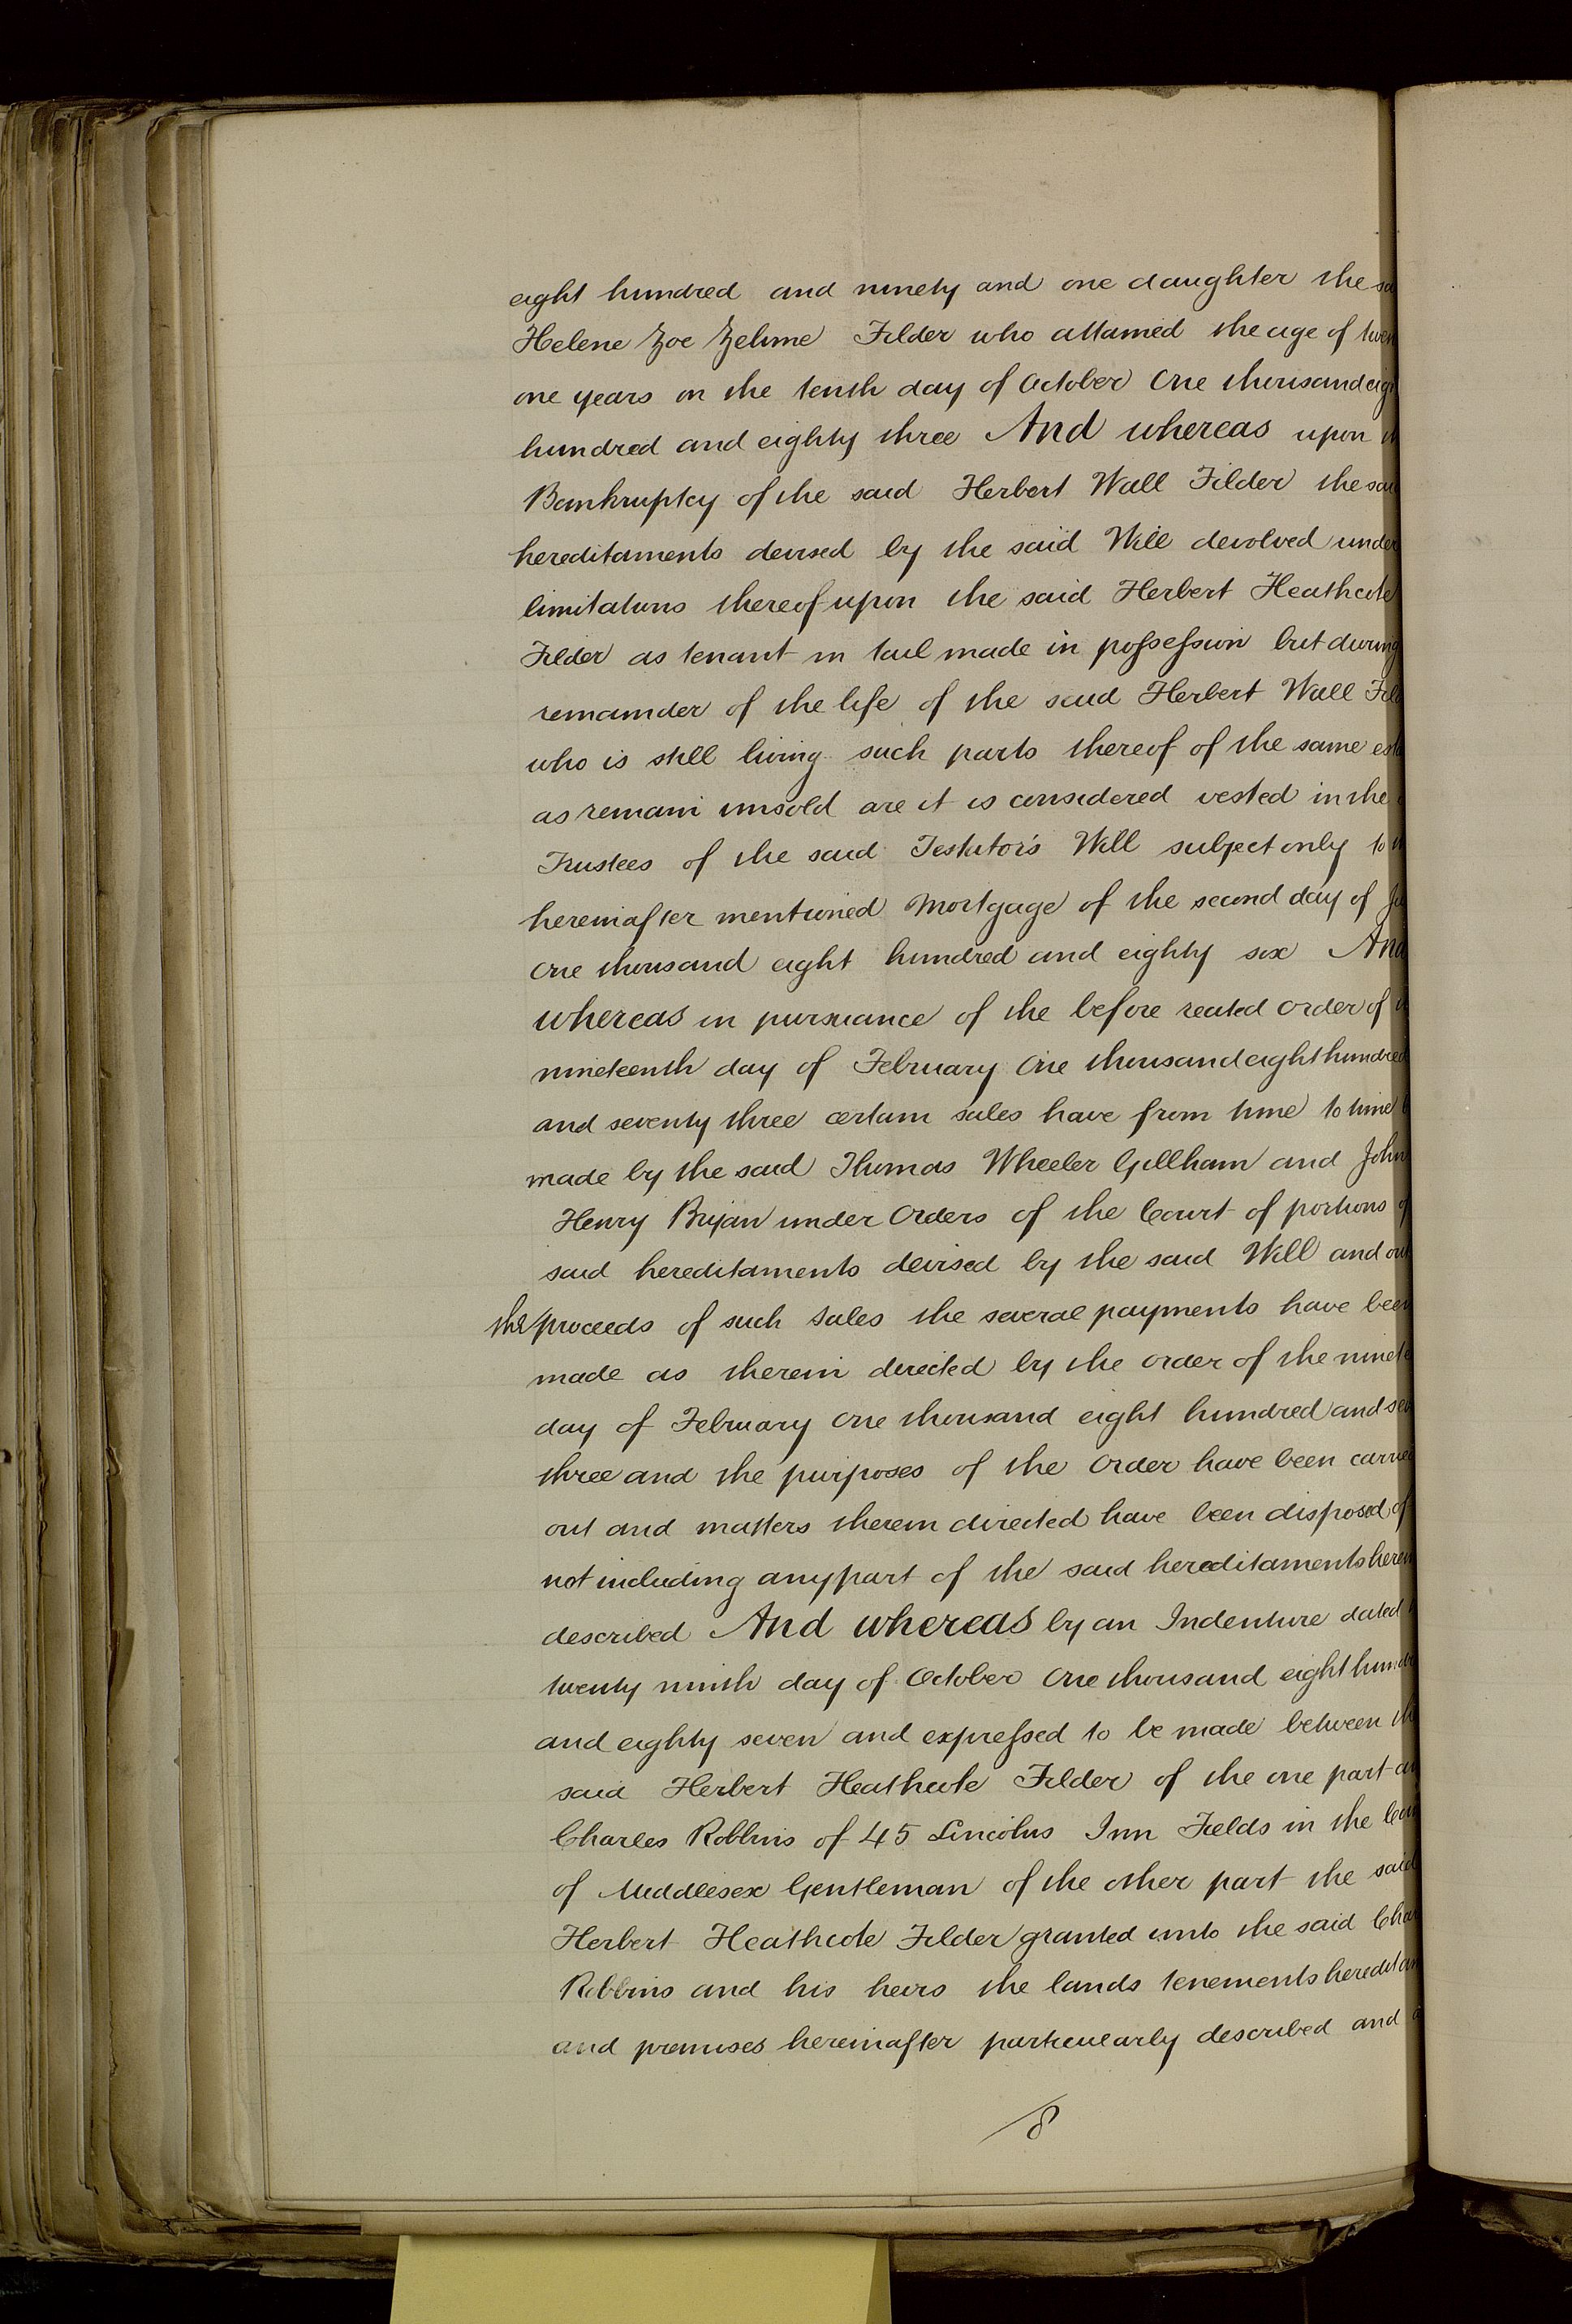 eight hundred and ninety and one daughter the sa
Helene Zoe Zelime Filder who attained the age of twen
one years on the tenth day of October One thousand eigh
hundred and eighty three And whereas upon th
Bankruptcy of the said Herbert Wall Filder the sai
hereditaments devised by the said Will devolved under
limitations thereof upon the said Herbert Heathcote
Filder as tenant in tail made in possession but during
remainder of the life of the said Herbert Wall Fild
who is still living such parts thereof of the same esta
as remain unsold are it is considered vested in the
Trustees of the said Testator's Will subject only to th
hereinafter mentioned Mortgage of the second day of
One thousand eight hundred and eighty six And
whereas in pursuance of the before recited Order of th
nineteenth day of February One thousand eight hundred
and seventy three certain sales have from time to time b
made by the said Thomas Wheeler Gillham and John
Henry Bryan under Orders of the Court of portions of
said hereditaments devised by the said Will and out
the/proceeds of such Sales the several payments have been
made as therein directed by the order of the ninete
day of February One thousand eight hundred and sev
three and the purposes of the Order have been carried
out and matters therein directed have been disposed of
not including any part of the said hereditaments herein
described And whereas by an Indenture dated t
twenty ninth day of October One thousand eight hundr
and eighty seven and expressed to be made between the
said Herbert Heathcote Filder of the one part an
Charles Robbins of 45 Lincolns Inn Fields in the Cou
of Middlesex Gentleman of the other part the said
Herbert Heathcote Filder granted unto the said Char
Robbins and his heirs the lands tenements hereditam
and premises hereinafter particularly described and a
8